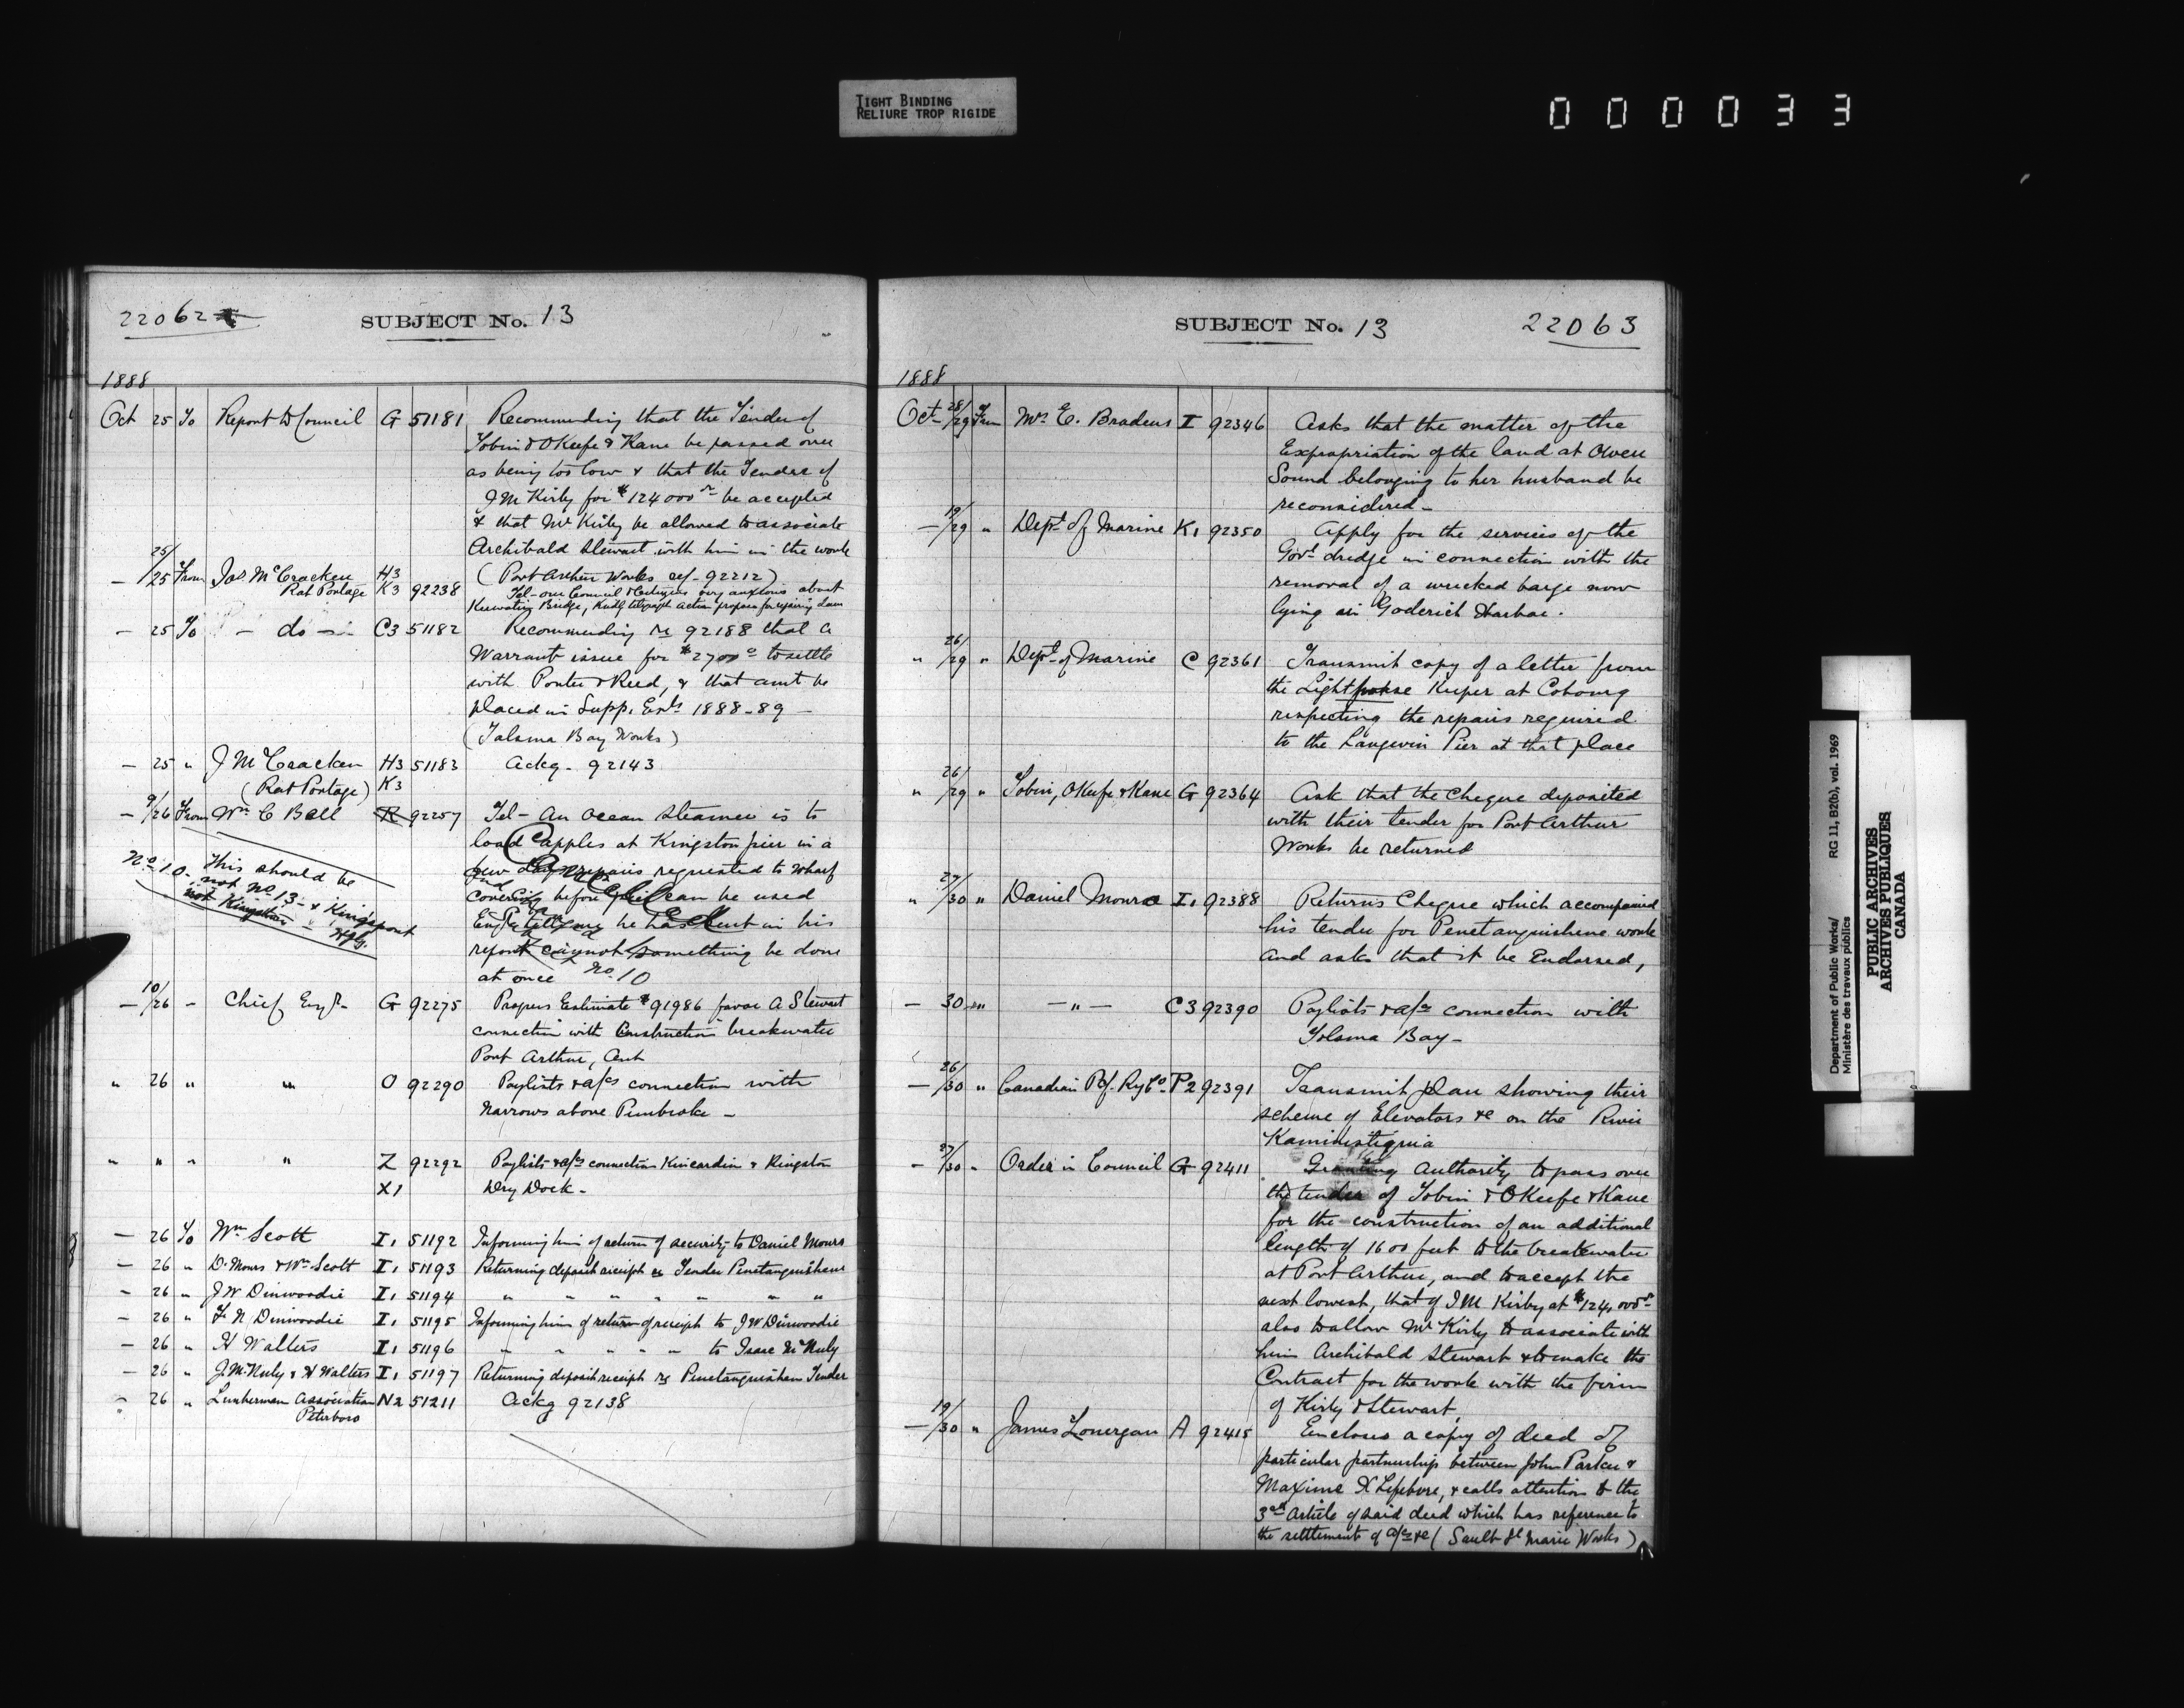 TIGHT BINDING
RELIURE TROP RIGIDE
000033
22062
SUBJECT No. 13
1888
Oct 25 To Report to Council G 51181 Recommending that the Tender of
Tobin & OKeefe & Kane be passed over
as being too low & that the Tender of
J M Kirby for $124000 be accepted
& that Mr Kirby be allowed to associate
Archibald Stewart with him in the work
(Port Arthur Works ref- 92212)
— 25/25 From Jas. McCracken H3
Rat Portage K3 92238 Tel- our Council & Citizens very anxious about
Keewatin Bridge, Kindly telegraph action propose for repairing dam
— 25 To — do — C3 51182 Recommending re 92188 that a
Warrant issue for $2700 to settle
with Porter & Reed, & that amt be
placed in Supp. Ests 1888-89 —
(Tolsma Bay Works)
— 25 " J McCracken H3 51183 Ackg- 92143
(Rat Portage) K3
— 9/26 From Wm C Bell R 92257 Tel- An Ocean Steamer is to
load apples at Kingston pier in a
few days repairs requested to wharf
covering before it can be used
Engr he has sent in his
report cannot something be done
at once No 10
No 10 - This should be
not No 13 - & Kingsport
not Kingston -
— 10/26 - Chief Engr G 92275 Progress Estimate # 91986 favor A Stewart
connection with Construction breakwater
Port Arthur, Ont
" 26 " " O 92290 Paylists & a/cs connection with
Narrows above Pembroke —
" " " " Z 92292 Paylists & a/cs connection Kincardin & Kingston
X1 Dry Dock -
— 26 To Wm Scott I1 51192 Informing him of return of security to Daniel Monro
— 26 " D. Monro & Wm Scott I1 51193 Returning deposit receipt re Tender Penetanguishene
— 26 " J W Dinwoodie I1 51194 " " " " " " "
— 26 " F N Dinwoodie I1 51195 Informing him of return of receipt to J W Dinwoodie
— 26 " H Walters I1 51196 " " " " " to Isaac McNuly
— 26 " J. McNuly & H Walters I1 51197 Returning deposit receipt re Penetanguishene Tender
" 26 " Lumberman Association N2 51211 Ackg 92138
Peterboro
SUBJECT No. 13
22063
1888
Oct 28/29 From Mrs E. Bradeus I 92346 Asks that the matter of the
Expropriation of the land at Owen
Sound belonging to her husband be
reconsidered -
— 19/29 " Dept of Marine K1 92350 Apply for the services of the
Govt dredge in connection with the
removal of a wrecked barge now
lying in Goderich Harbor.
" 26/29 " Dept of Marine C 92361 Transmit copy of a letter from
the Lighthouse Keeper at Cobourg
respecting the repairs required
to the Langevin Pier at that place
" 26/29 " Tobin, OKeefe & Kane G 92364 Ask that the cheque deposited
with their tender for Port Arthur
Works be returned
" 27/30 " Daniel Monro I1 92388 Returns Cheque which accompanied
his tender for Penetanguishene work
and asks that it be Endorsed,
— 30 " — " — C3 92390 Paylists & a/cs connection with
Tolsma Bay -
— 26/30 " Canadian Pcf. Ry Co P2 92391 Transmit plan showing their
scheme of Elevators &c on the River
Kaministiquia
— 27/30 " Order in Council G 92411 Granting authority to pass over
the tender of Tobin & OKeefe & Kane
for the construction of an additional
length of 1600 feet to the breakwater
at Port Arthur, and to accept the
next lowest, that of J M Kirby at $124,000
also to allow Mr Kirby to associate with
him Archibald Stewart & to make the
Contract for the work with the firm
of Kirby & Stewart,
— 19/30 " James Lonergan A 92415 Encloses a copy of deed of
particular partnership between John Parker &
Maxime X Lefebvre, & calls attention to the
3rd Article of said deed which has reference to
the settlement of a/cs &c (Sault St Marie Works)
Department of Public Works/
Ministère des travaux publics
RG 11, B2(b), vol. 1969
PUBLIC ARCHIVES
ARCHIVES PUBLIQUES
CANADA